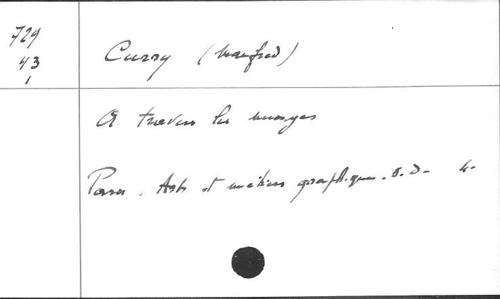 729
43
1
Curry (Manfred)
A travers les nuages
Paris, Arts et métiers graphiques. S. D. 4.